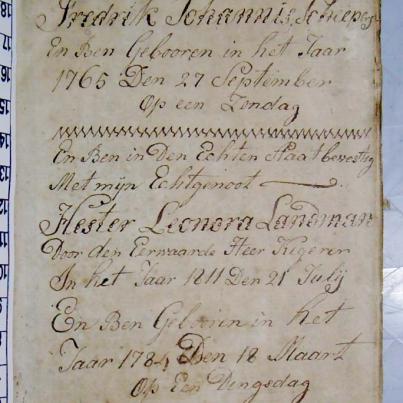 Fredrik Johannis Schepers
En Ben Gebooren in het Jaar
1765 Den 27 September
Op een Zondag
En Ben in Den Echten Staat bevestig
Met mijn Echtgenoot
Hester Leonora Landman
Door den Eerwaarde Heer
In het Jaar 1811 Den 21 Julij
En Ben Gebooren in het
Jaar 1784 Den 18 Maart
Op Een Dingsdag